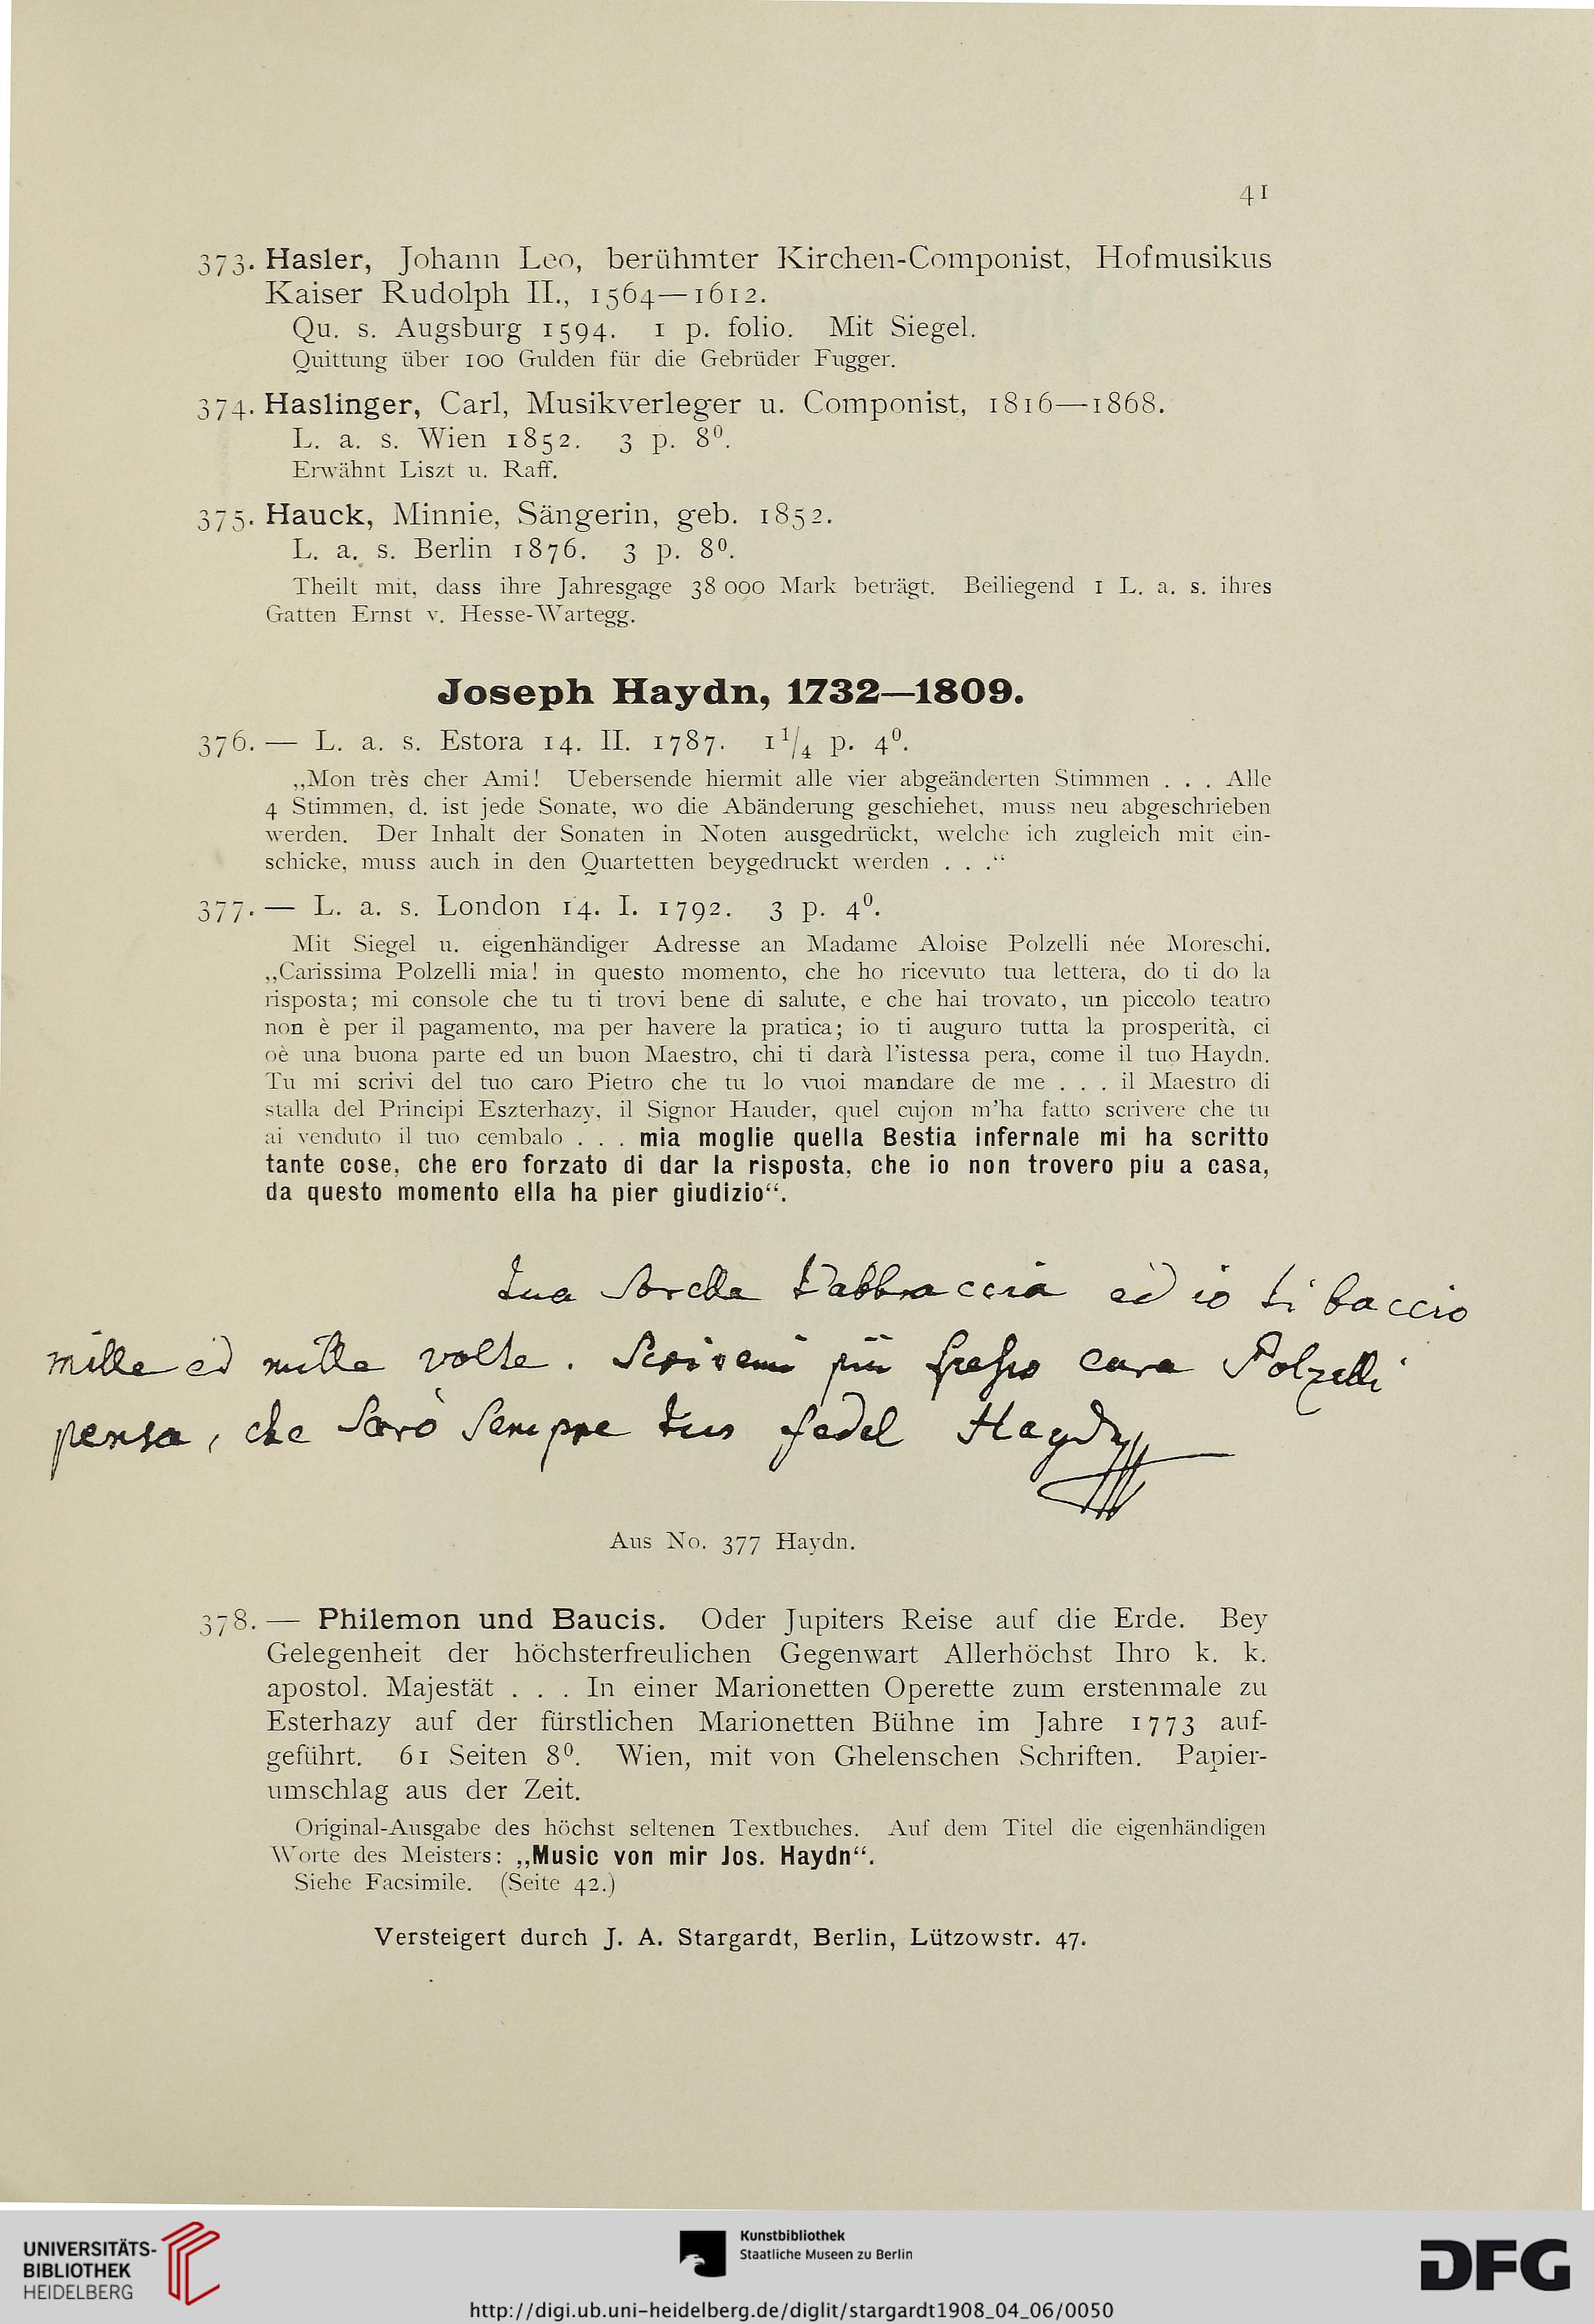 41
373. Hasler, Johann Leo, berühmter Kirchen-Componist, Hofmusikus
Kaiser Rudolph II., 1564—1612.
Qu. s. Augsburg 1594. 1 p. folio. Mit Siegel.
Quittung über 100 Gulden für die Gebrüder Fugger.
374. Haslinger, Carl, Musikverleger u. Componist, 1816—1868.
L. a. s. Wien 1852. 3 p. 8⁰.
Erwähnt Liszt u. Raff.
375. Hauck, Minnie, Sängerin, geb. 1852.
L. a. s. Berlin 1876. 3 p. 8⁰.
Theilt mit, dass ihre Jahresgage 38 000 Mark beträgt. Beiliegend 1 L. a. s. ihres
Gatten Ernst v. Hesse-Wartegg.
Joseph Haydn, 1732—1809.
376. — L. a. s. Estora 14. II. 1787. 1¹/₄ p. 4⁰.
„Mon très cher Ami! Uebersende hiermit alle vier abgeänderten Stimmen . . . Alle
4 Stimmen, d. ist jede Sonate, wo die Abänderung geschiehet, muss neu abgeschrieben
werden. Der Inhalt der Sonaten in Noten ausgedrückt, welche ich zugleich mit ein-
schicke, muss auch in den Quartetten beygedruckt werden . . .“
377. — L. a. s. London 14. I. 1792. 3 p. 4⁰.
Mit Siegel u. eigenhändiger Adresse an Madame Aloise Polzelli née Moreschi.
„Carissima Polzelli mia! in questo momento, che ho ricevuto tua lettera, do ti do la
risposta; mi console che tu ti trovi bene di salute, e che hai trovato, un piccolo teatro
non è per il pagamento, ma per havere la pratica; io ti auguro tutta la prosperità, ci
oè una buona parte ed un buon Maestro, chi ti darà l'istessa pera, come il tuo Haydn.
Tu mi scrivi del tuo caro Pietro che tu lo vuoi mandare de me . . . il Maestro di
stalla del Principi Eszterhazy, il Signor Hauder, quel cujon m'ha fatto scrivere che tu
ai venduto il tuo cembalo . . . mia moglie quella Bestia infernale mi ha scritto
tante cose, che ero forzato di dar la risposta, che io non trovero piu a casa,
da questo momento ella ha pier giudizio“.
tua Sorella t'abbraccia ed io ti baccio
mille ed mille volte. Scrivemi più spesso cara Polzelli
pensa, che Sarò Sempre tuo fedel Haydn
Aus No. 377 Haydn.
378. — Philemon und Baucis. Oder Jupiters Reise auf die Erde. Bey
Gelegenheit der höchsterfreulichen Gegenwart Allerhöchst Ihro k. k.
apostol. Majestät . . . In einer Marionetten Operette zum erstenmale zu
Esterhazy auf der fürstlichen Marionetten Bühne im Jahre 1773 auf-
geführt. 61 Seiten 8⁰. Wien, mit von Ghelenschen Schriften. Papier-
umschlag aus der Zeit.
Original-Ausgabe des höchst seltenen Textbuches. Auf dem Titel die eigenhändigen
Worte des Meisters: „Music von mir Jos. Haydn“.
Siehe Facsimile. (Seite 42.)
Versteigert durch J. A. Stargardt, Berlin, Lützowstr. 47.
UNIVERSITÄTS-
BIBLIOTHEK
HEIDELBERG
Kunstbibliothek
Staatliche Museen zu Berlin
DFG
http://digi.ub.uni-heidelberg.de/diglit/stargardt1908_04_06/0050